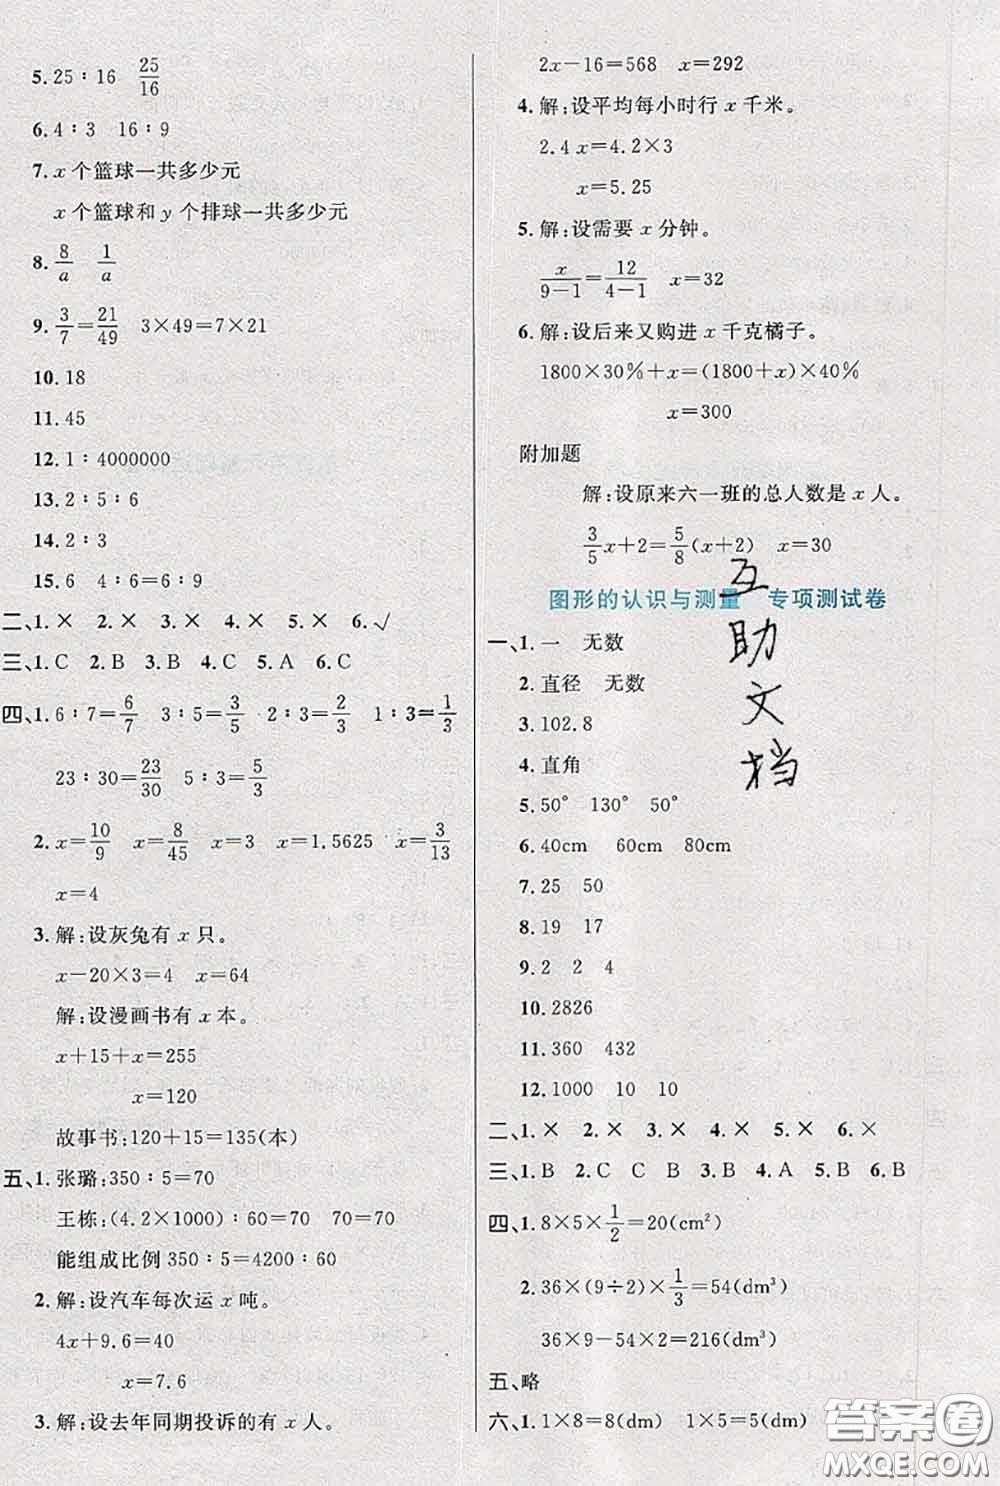 5. 25∶16　25/16
6. 4∶3　16∶9
7. x 个篮球一共多少元
x 个篮球和 y 个排球一共多少元
8. 8/a　1/a
9. 3/7=21/49　3×49=7×21
10. 18
11. 45
12. 1∶4000000
13. 2∶5∶6
14. 2∶3
15. 6　4∶6=6∶9
二、1. ×　2. ×　3. ×　4. ×　5. ×　6. √
三、1. C　2. B　3. B　4. C　5. A　6. C
四、1. 6∶7=6/7　3∶5=3/5　2∶3=2/3　1∶3=1/3
23∶30=23/30　5∶3=5/3
2. x=10/9　x=8/45　x=3　x=1.5625　x=3/13
x=4
3. 解:设灰兔有 x 只。
x-20×3=4　x=64
解:设漫画书有 x 本。
x+15+x=255
x=120
故事书:120+15=135(本)
五、1. 张璐:350∶5=70
王栋:(4.2×1000)∶60=70　70=70
能组成比例 350∶5=4200∶60
2. 解:设汽车每次运 x 吨。
4x+9.6=40
x=7.6
3. 解:设去年同期投诉的有 x 人。
2x-16=568　x=292
4. 解:设平均每小时行 x 千米。
2.4x=4.2×3
x=5.25
5. 解:设需要 x 分钟。
x/(9-1)=12/(4-1)　x=32
6. 解:设后来又购进 x 千克橘子。
1800×30%+x=(1800+x)×40%
x=300
附加题
解:设原来六一班的总人数是 x 人。
3/5x+2=5/8(x+2)　x=30
图形的认识与测量　专项测试卷
一、1. 一　无数
2. 直径　无数
3. 102.8
4. 直角
5. 50°　130°　50°
6. 40cm　60cm　80cm
7. 25　50
8. 19　17
9. 2　2　4
10. 2826
11. 360　432
12. 1000　10　10
二、1. ×　2. ×　3. ×　4. ×　5. ×　6. ×
三、1. B　2. C　C　B　3. B　4. A　5. B　6. B
四、1. 8×5×1/2=20(cm²)
2. 36×(9÷2)×1/3=54(dm³)
36×9-54×2=216(dm³)
五、略
六、1. 1×8=8(dm)　1×5=5(dm)
互
助
文
档
答案卷
MXQE.COM